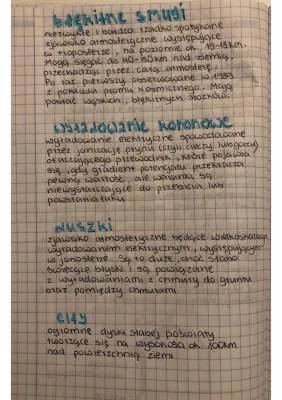 błękitne smugi
niezwykłe i bardzo rzadko spotykane
zjawisko atmosferyczne występujące
w troposferze, na poziomie ok. 15-18km.
Mogą sięgać do 40-50km nad ziemią,
przechodząc przez całą atmosferę.
Po raz pierwszy obserwowane w 1989
z pokładu promu kosmicznego. Mają
postać wąskich, błękitnych stożków.
wyładowanie koronowe
wyładowanie elektryczne spowodowane
przez jonizację płynu (czyli cieczy lub gazu)
otaczającego przewodnik, które pojawia
się, gdy gradient potencjału przekracza
pewną wartość, ale warunki są
niewystarczające do przebicia lub
powstania łuku.
duszki
zjawisko atmosferyczne będące wielkoskalowym
wyładowaniem elektrycznym, występującym
w jonosferze. Są to duże, choć słabo
świecące błyski i są powiązane
z wyładowaniami z chmury do gruntu
oraz pomiędzy chmurami.
elfy
ogromne dyski słabej poświaty
tworzące się na wysokości ok. 100km
nad powierzchnią ziemi